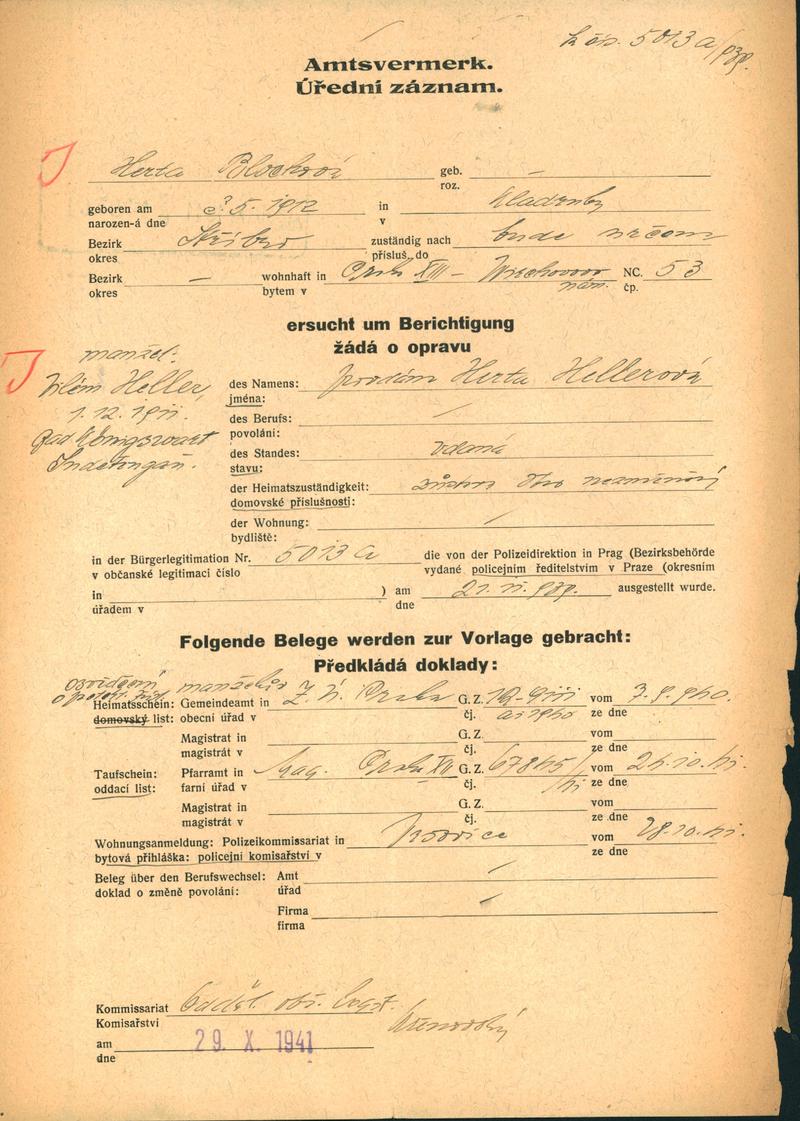 5013 a/939.
Amtsvermerk.
Úřední záznam.
J
Herta Blochová geb. —
roz.
geboren am 5. 1912 in Kladruby
narozen-á dne v
Bezirk Stříbro zuständig nach bude určeno
okres přísluš. do
Bezirk — wohnhaft in Praha XIII – NC. 53
okres bytem v nám. čp.
ersucht um Berichtigung
žádá o opravu
manžel:
J
Vilém Heller,
1. 12. 1911.
Bad Königswart
des Namens: provdána Herta Hellerová
jména:
des Berufs: /
povolání:
des Standes: vdaná
stavu:
der Heimatszuständigkeit:
domovské příslušnosti:
der Wohnung: /
bydliště:
in der Bürgerlegitimation Nr. 5013 a die von der Polizeidirektion in Prag (Bezirksbehörde
v občanské legitimaci číslo vydané policejním ředitelstvím v Praze (okresním
in ) am 21. 11. 939. ausgestellt wurde.
úřadem v dne
Folgende Belege werden zur Vorlage gebracht:
Předkládá doklady:
osvědčení
manželů
Heimatsschein: Gemeindeamt in Z. ú. Praha G. Z. vom 7. 9. 940.
domovský list: obecní úřad v čj. ze dne
Magistrat in G. Z. vom
magistrát v čj. ze dne
Taufschein: Pfarramt in Mag. Praha XII G. Z. 67845/41 vom 24. 10. 41.
oddací list: farní úřad v čj. ze dne
Magistrat in G. Z. vom
magistrát v čj. ze dne
Wohnungsanmeldung: Polizeikommissariat in Vršovice vom 28. 10. 41.
bytová přihláška: policejní komisařství v ze dne
Beleg über den Berufswechsel: Amt /
doklad o změně povolání: úřad
Firma /
firma
Kommissariat odděl. obč. legit.
Komisařství
am 29. X. 1941
dne